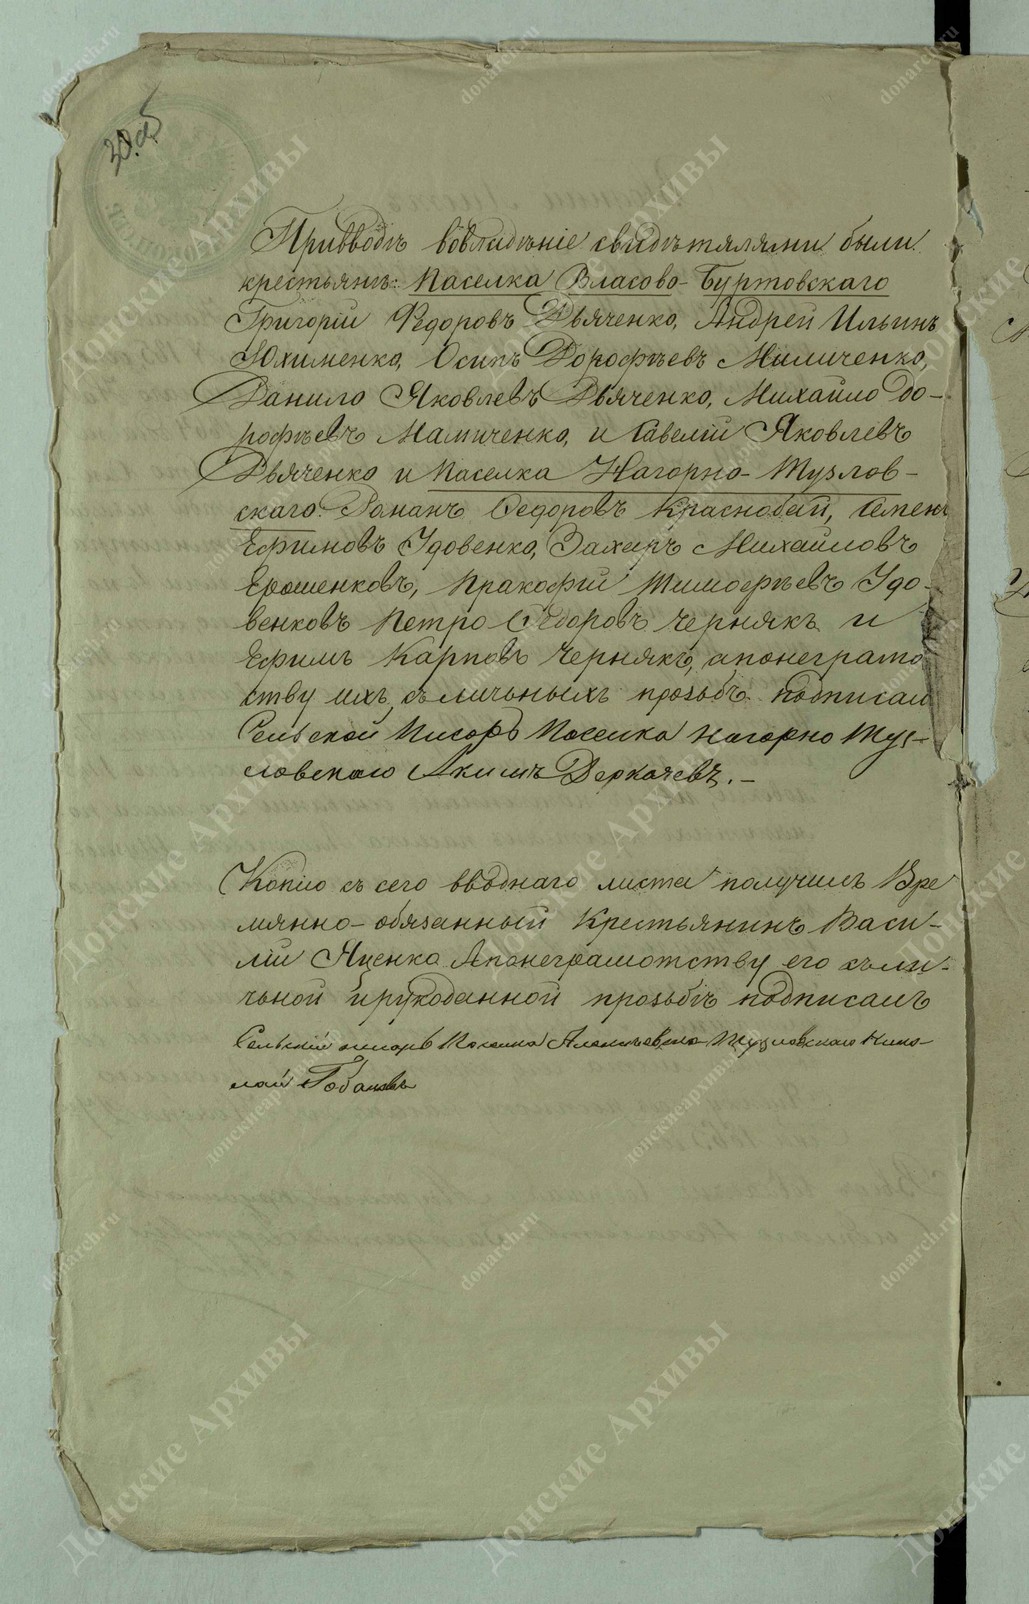 30.об
Привводѣ вовладѣніе свидѣтялями были
крестьянѣ: Паселка Власово-Буртовскаго
Григорій Федоровъ Дьяченко, Андрей Ильинъ
Юхименко, Осипъ Дорофѣевъ Миличенко,
Данило Яковлевъ Дьяченко, Михайло До-
рофѣевъ Мамиченко, и Савелій Яковлевъ
Дьяченко и Паселка Нагорно-Тузлов-
скаго: Романъ Федоровъ Краснобай, Семенъ
Ефимовъ Удовенко, Захаръ Михайловъ
Ерошенковъ, Пракофій Тимофѣевъ Удо-
венковъ Петро Сидоровъ Чернякъ и
Ефимъ Карповъ Чернякъ, апонеграмо
ству ихъ, съличьныхъ прозьбъ подписал
Сельской Писоръ Поселка Нагорно Туз-
ловскаго Акимъ Деркачевъ.-
Копію съ сего вводнаго листа получилъ Вре
мянно-обязанный Крестьянинъ Васи-
лій Яценко Апонеграмотству его съли-
чьной ирукоданной прозьбѣ подписалъ
Сельскій писорь Поселка Алексѣевно Тузловскаго Нико-
лай
донскиеархивы
donarch.ru
Донские Архивы